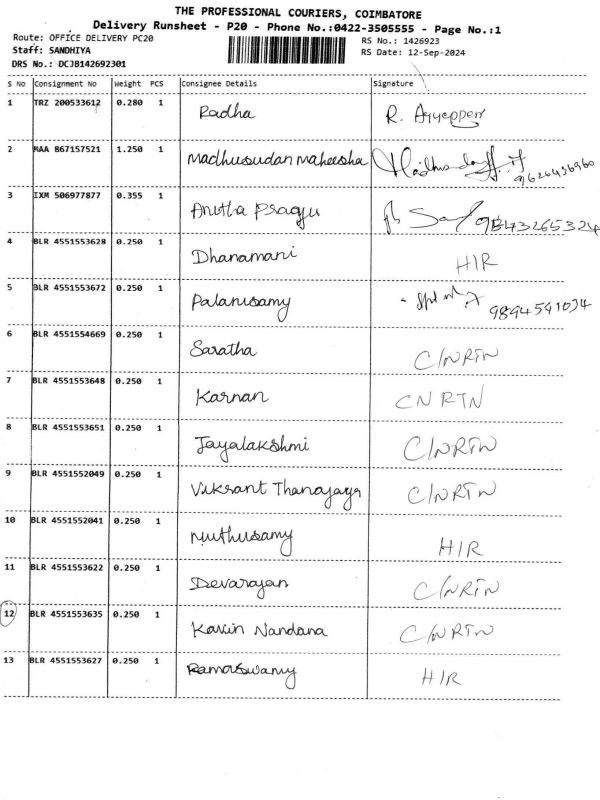 THE PROFESSIONAL COURIERS, COIMBATORE
Delivery Runsheet - P20 - Phone No.:0422-3505555 - Page No.:1
Route: OFFICE DELIVERY PC20 RS No.: 1426923
Staff: SANDHIYA RS Date: 12-Sep-2024
DRS No.: DCJB142692301
S No Consignment No Weight PCS Consignee Details Signature
1 TRZ 200533612 0.280 1 Radha R. Ayyappan
2 MAA 867157521 1.250 1 Madhusudan Maheesha
9626436960
3 IXM 506977877 0.355 1 Anitha Pragyu 9843265324
4 BLR 4551553628 0.250 1 Dhanamani HIR
5 BLR 4551553672 0.250 1 Palanisamy 9894541034
6 BLR 4551554669 0.250 1 Saratha C/NRTN
7 BLR 4551553648 0.250 1 Karnan CN RTN
8 BLR 4551553651 0.250 1 Jayalakshmi C/NRTN
9 BLR 4551552049 0.250 1 Vikrant Thanajaya C/NRTN
10 BLR 4551552041 0.250 1 Muthusamy HIR
11 BLR 4551553622 0.250 1 Devarajan C/NRTN
12 BLR 4551553635 0.250 1 Kavin Nandana C/NRTN
13 BLR 4551553627 0.250 1 Ramaswamy HIR